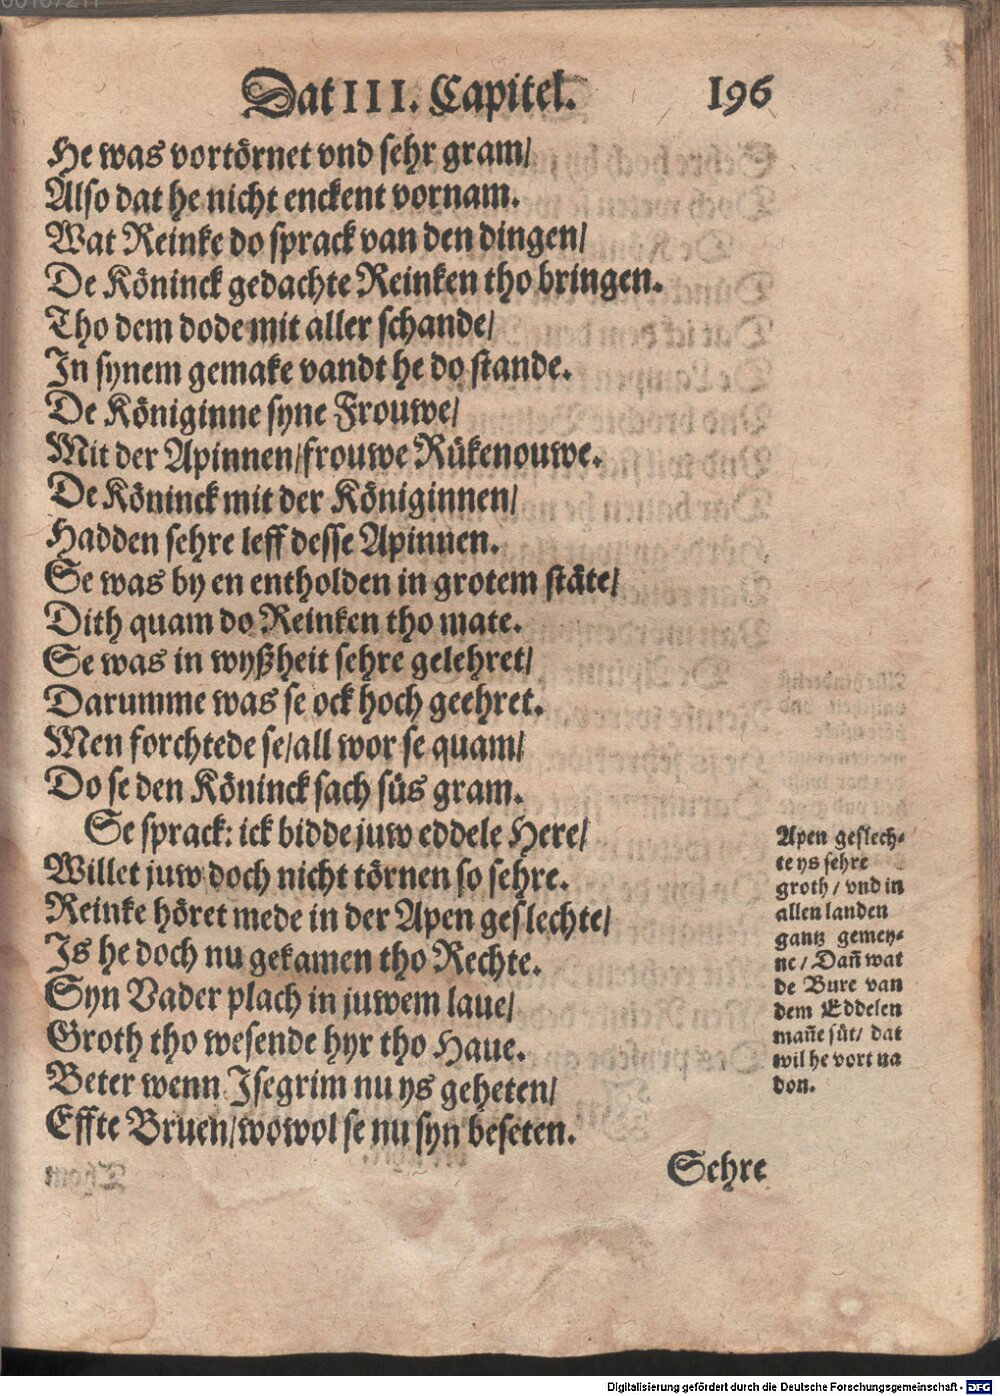 Dat III. Capitel. 196
He was vortörnet vnd sehr gram/
Also dat he nicht enckent vornam.
Wat Reinke do sprack van den dingen/
De Köninck gedachte Reinken tho bringen.
Tho dem dode mit aller schande/
In synem gemake vandt he do stande.
De Königinne syne Frouwe/
Mit der Apinnen/frouwe Rükenouwe.
De Köninck mit der Königinnen/
Hadden sehre leff desse Apinnen.
Se was by en entholden in grotem stäte/
Dith quam do Reinken tho mate.
Se was in wyßheit sehre gelehret/
Darumme was se ock hoch geehret.
Men forchtede se/all wor se quam/
Do se den Köninck sach süs gram.
Se sprack: ick bidde juw eddele Here/
Willet juw doch nicht törnen so sehre.
Reinke höret mede in der Apen geslechte/
Is he doch nu gekamen tho Rechte.
Syn Vader plach in juwem laue/
Groth tho wesende hyr tho Haue.
Beter wenn Isegrim nu ys geheten/
Effte Bruen/wowol se nu syn beseten.
Apen geslech-
te ys sehre
groth / vnd in
allen landen
gantz gemey-
ne / Dañ wat
de Bure van
dem Eddelen
mañe süt/ dat
wil he vort na
don.
Sehre
Digitalisierung gefördert durch die Deutsche Forschungsgemeinschaft - DFG